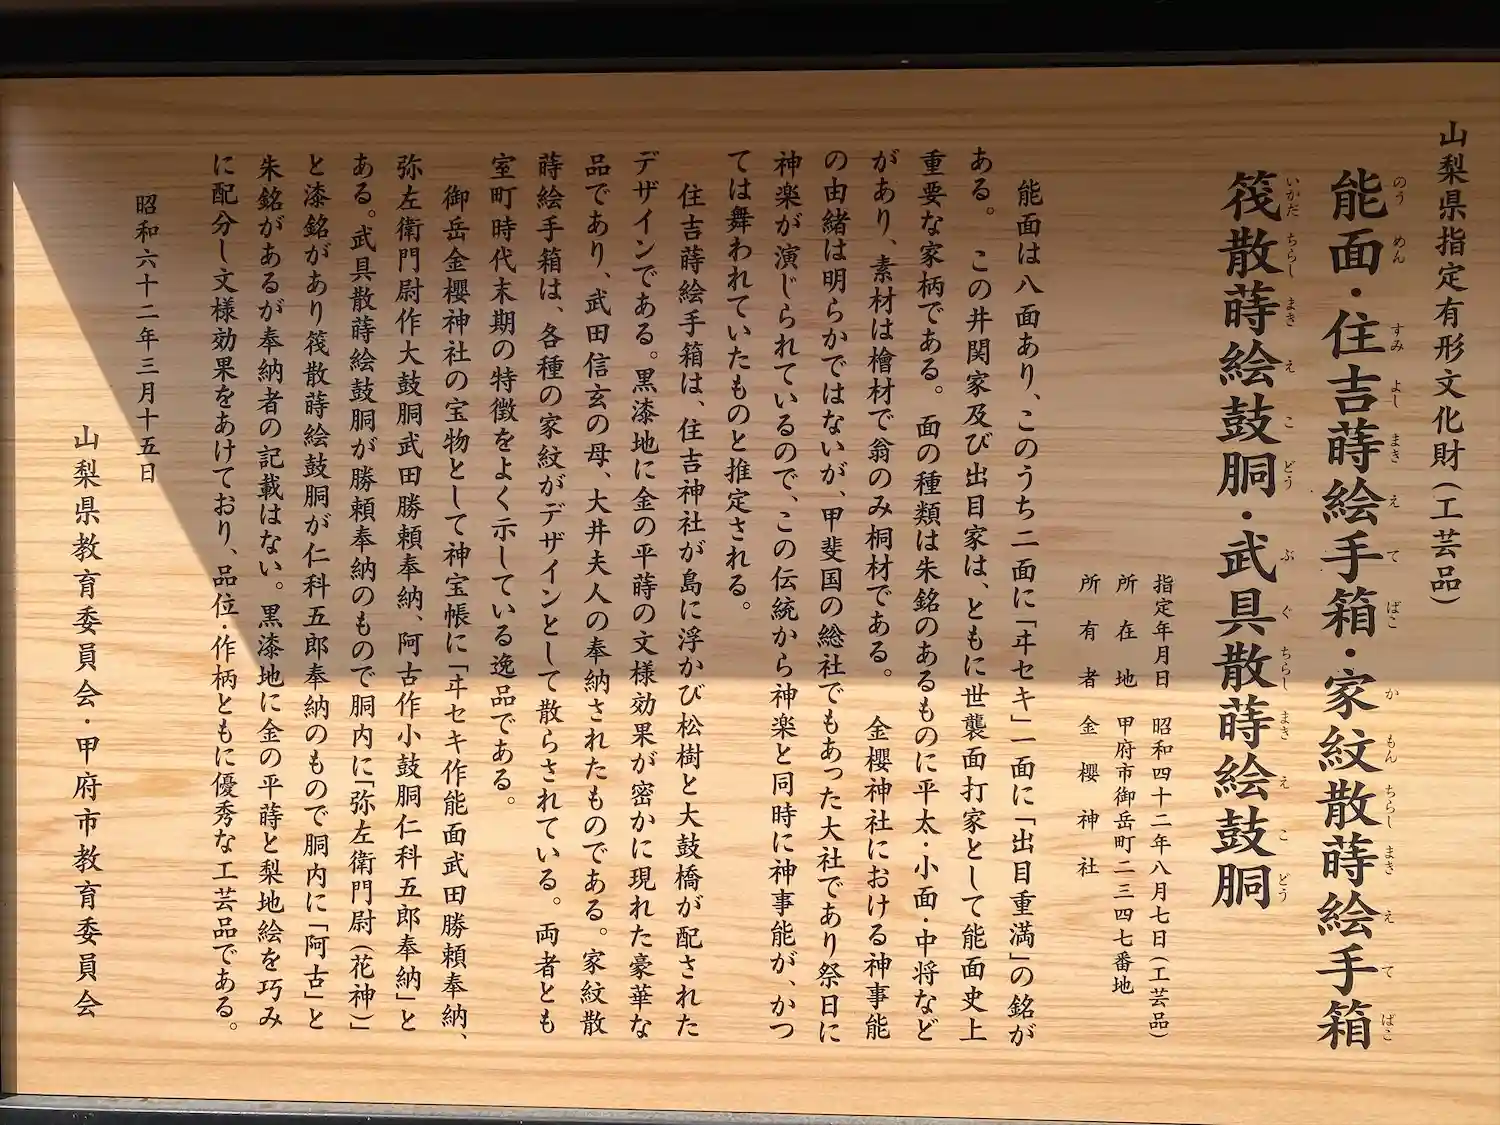 山梨県指定有形文化財（工芸品）
能面・住吉蒔絵手箱・家紋散蒔絵手箱
のう めん すみ よし まき え て ばこ か もん ちらし まき え て ばこ
筏散蒔絵鼓胴・武具散蒔絵鼓胴
いかだ ちらし まき え こ どう ぶ ぐ ちらし まき え こ どう
指定年月日 昭和四十二年八月七日（工芸品）
所在地 甲府市御岳町二三四七番地
所有者 金櫻神社
能面は八面あり、このうち二面に「ヰセキ」一面に「出目重満」の銘が
ある。この井関家及び出目家は、ともに世襲面打家として能面史上
重要な家柄である。面の種類は朱銘のあるものに平太・小面・中将など
があり、素材は檜材で翁のみ桐材である。金櫻神社における神事能
の由緒は明らかではないが、甲斐国の総社でもあった大社であり祭日に
神楽が演じられているので、この伝統から神楽と同時に神事能が、かつ
ては舞われていたものと推定される。
住吉蒔絵手箱は、住吉神社が島に浮かび松樹と大鼓橋が配された
デザインである。黒漆地に金の平蒔の文様効果が密かに現れた豪華な
品であり、武田信玄の母、大井夫人の奉納されたものである。家紋散
蒔絵手箱は、各種の家紋がデザインとして散らされている。両者とも
室町時代末期の特徴をよく示している逸品である。
御岳金櫻神社の宝物として神宝帳に「ヰセキ作能面武田勝頼奉納、
弥左衛門尉作大鼓胴武田勝頼奉納、阿古作小鼓胴仁科五郎奉納」と
ある。武具散蒔絵鼓胴が勝頼奉納のもので胴内に「弥左衛門尉（花神）」
と漆銘があり筏散蒔絵鼓胴が仁科五郎奉納のもので胴内に「阿古」と
朱銘があるが奉納者の記載はない。黒漆地に金の平蒔と梨地絵を巧み
に配分し文様効果をあけており、品位・作柄ともに優秀な工芸品である。
昭和六十二年三月十五日
山梨県教育委員会・甲府市教育委員会